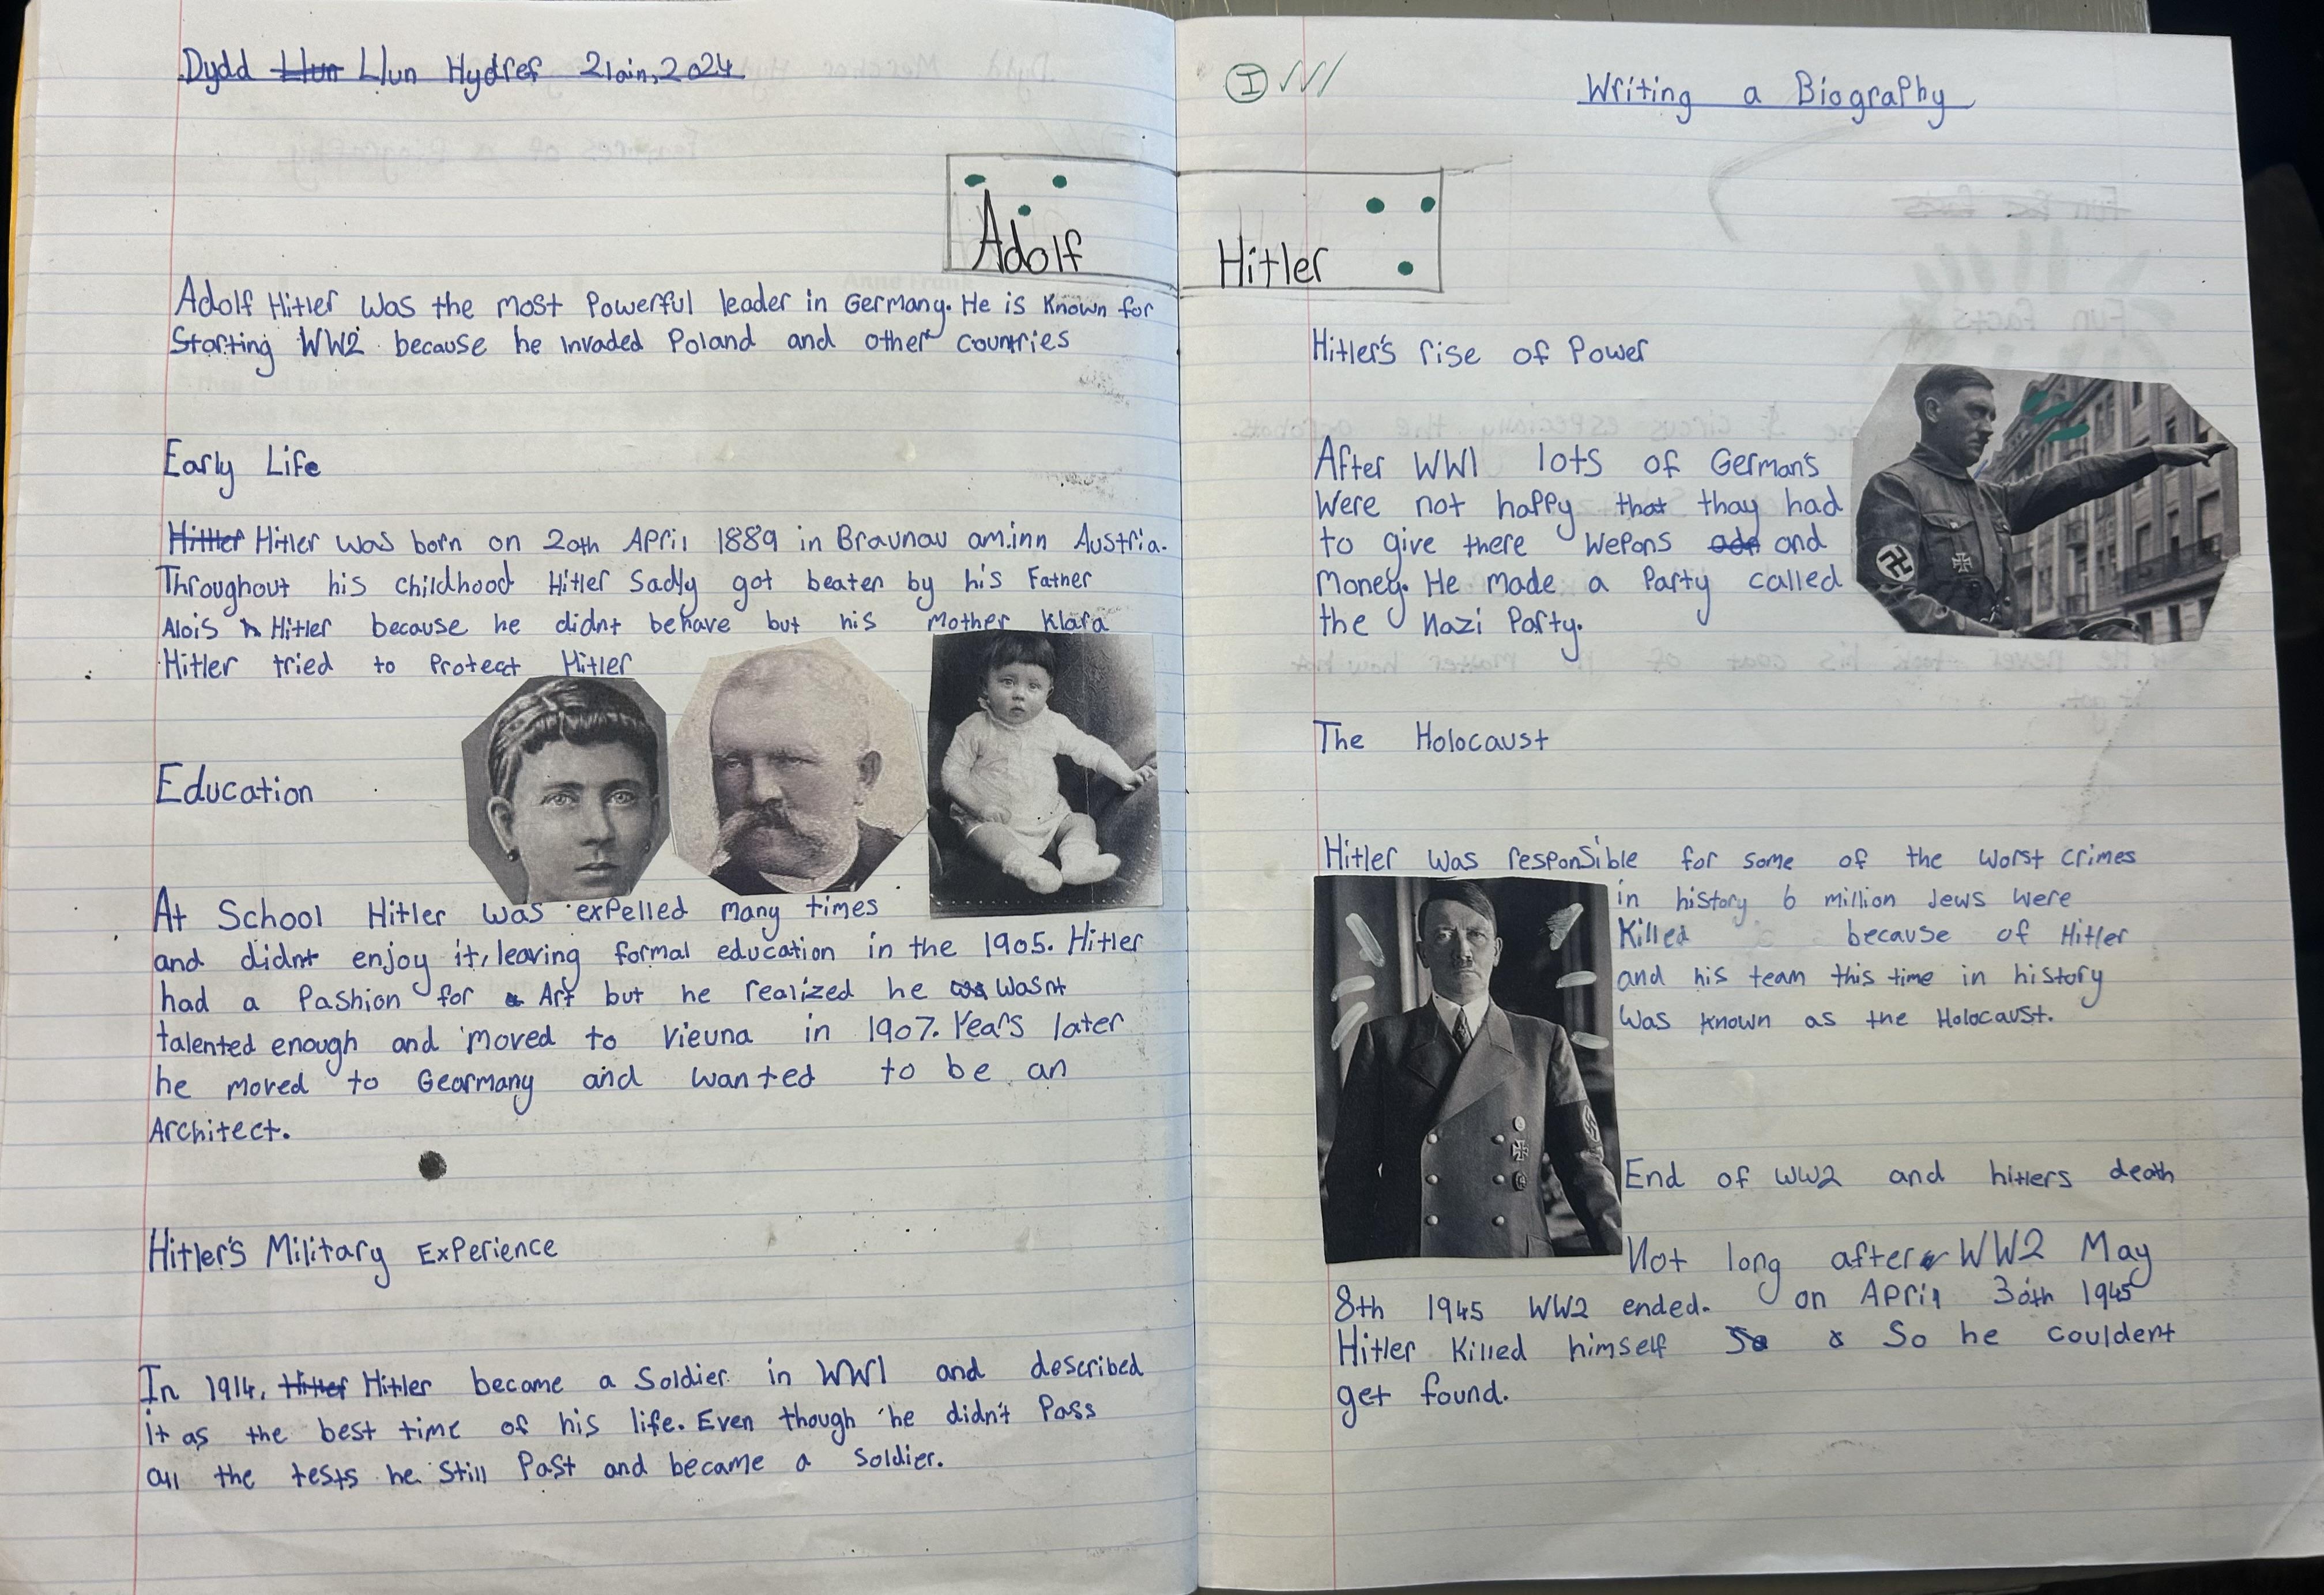 Dydd Llun Llun Hydref 21ain, 2024
Adolf
Adolf Hitler was the most Powerful leader in Germany. He is known for
Starting WW2 because he invaded Poland and other countries
Early Life
Hitler Hitler was born on 20th April 1889 in Braunau am.inn Austria.
Throughout his childhood Hitler Sadly got beaten by his Father
Alois Hitler because he didnt behave but his Mother Klara
Hitler tried to Protect Hitler
Education
At School Hitler was expelled many times
and didnt enjoy it, leaving formal education in the 1905. Hitler
had a Pashion for Art but he realized he was wasnt
talented enough and moved to Vieuna in 1907. Years later
he moved to Gearmany and wanted to be an
Architect.
Hitler's Military Experience
In 1914, Hitler Hitler became a Soldier in WW1 and described
it as the best time of his life. Even though he didn't Pass
all the tests he Still Past and became a Soldier.
I
Writing a Biography
Hitler
Hitler's rise of Power
After WW1 lots of German's
Were not happy that thay had
to give there Wepons and
Money. He made a Party called
the Nazi Party.
The Holocaust
Hitler was responsible for some of the worst crimes
in history 6 million Jews were
Killed because of Hitler
and his team this time in history
Was known as the Holocaust.
End of WW2 and hitlers death
Not long after WW2 May
8th 1945 WW2 ended. on April 30th 1945
Hitler Killed himself So So he couldent
get found.